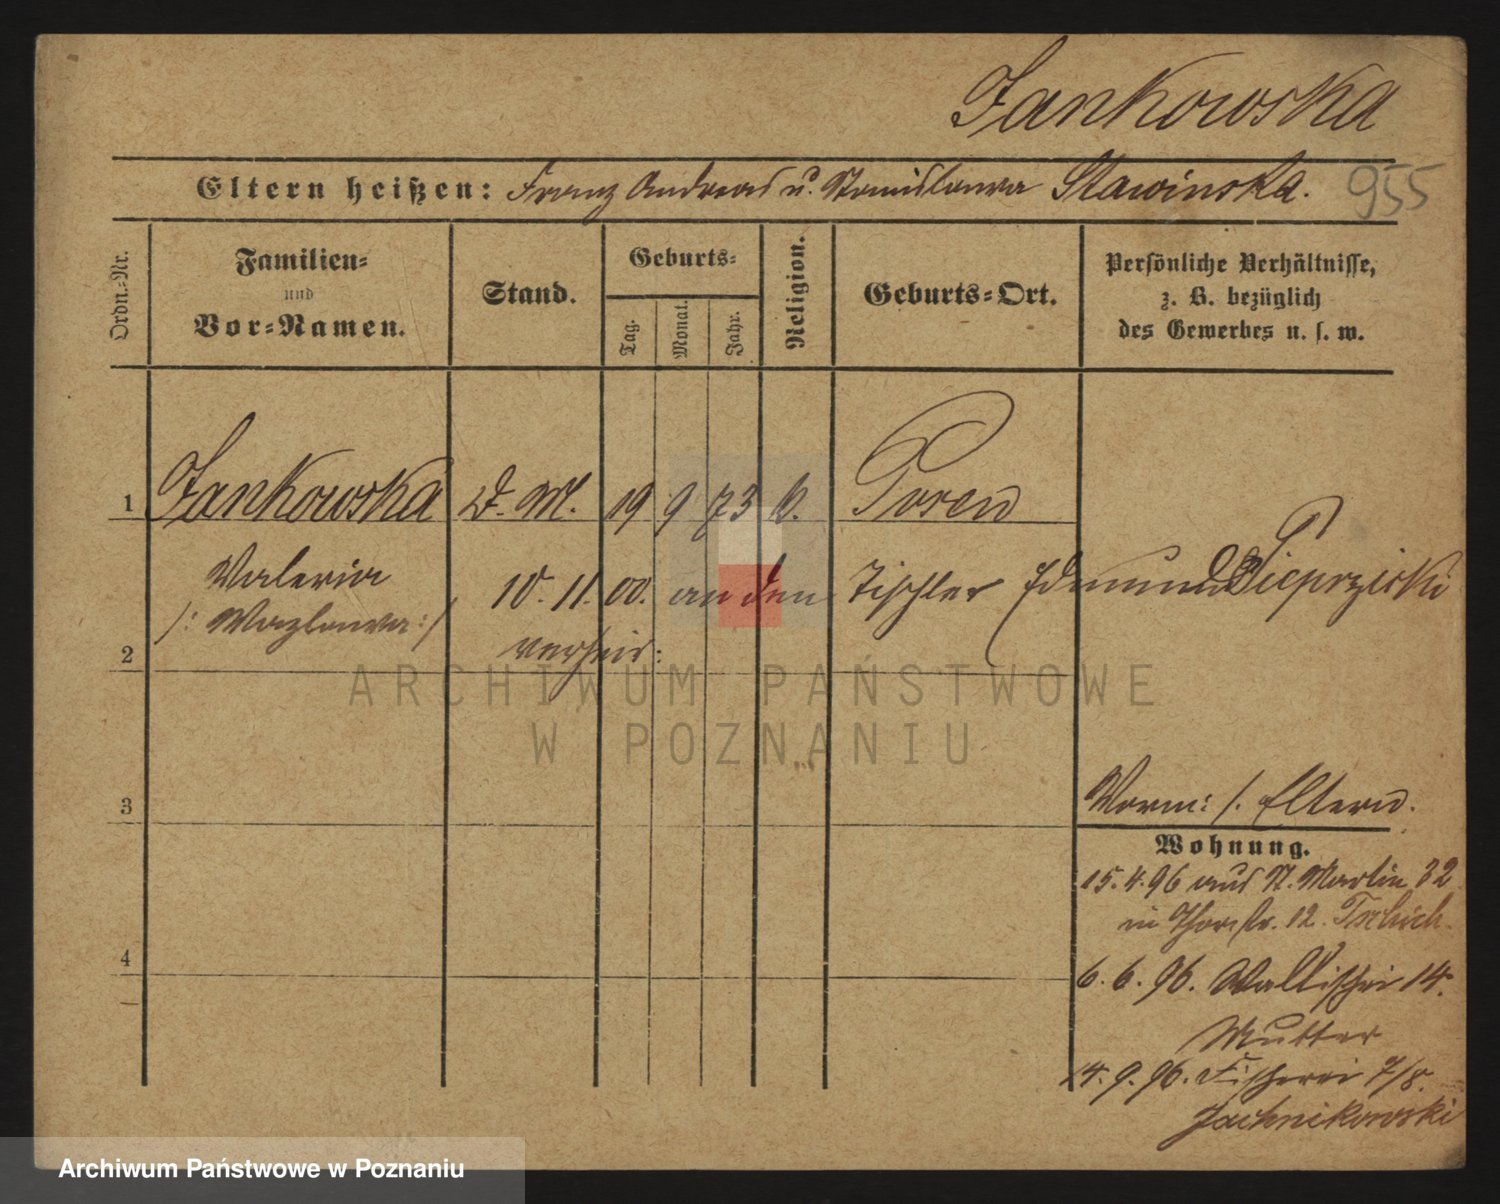 Jankowska
Eltern heißen: Franz Andreas u. Stanislawa Stawinska.
955
Ordn.=Nr.
Familien=
und
Vor=Namen.
Stand.
Geburts=
Tag.
Monat.
Jahr.
Religion.
Geburts=Ort.
Persönliche Verhältnisse,
z. B. bezüglich
des Gewerbes u. s. w.
1 Jankowska D. M. 19 9 73 k. Posen
Valeria
10. 11. 00. an den Tischler Edmund Pieprzicki
/: Wazlawa :/
verheir:
2
3
4
Vorm: /. Eltern.
Wohnung.
15. 4. 96 aus St. Martin 32
in Thorstr. 12.
6. 6. 96. Wallischei 14.
Mutter
14. 9. 96. Fischerei 7/8.
Jachnikowski
ARCHIWUM PAŃSTWOWE
W POZNANIU
Archiwum Państwowe w Poznaniu